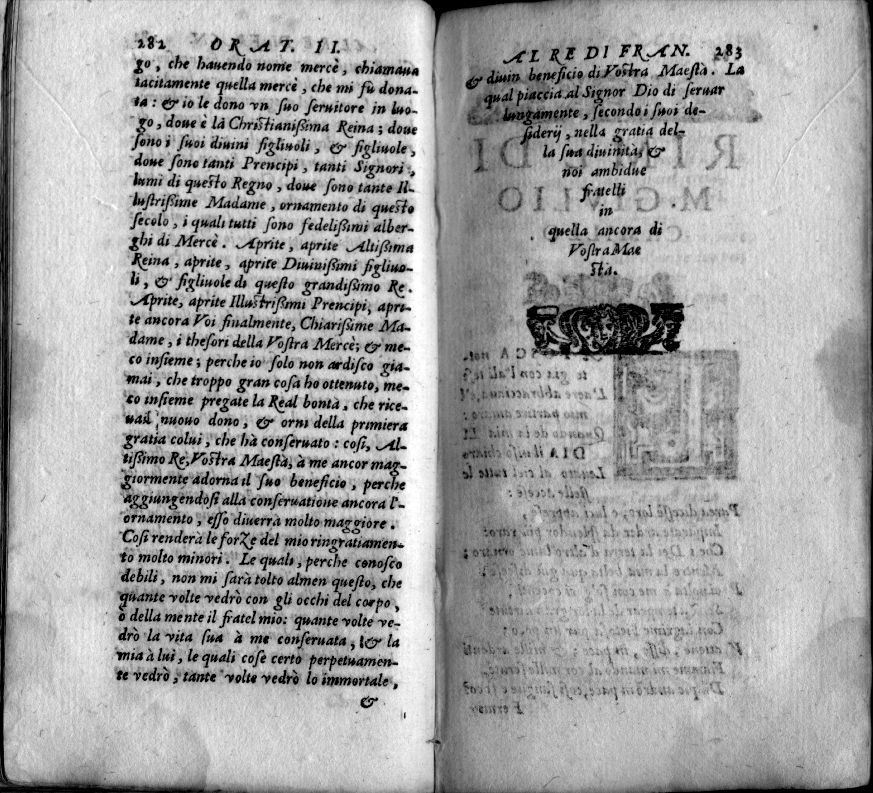 282 ORAT. II.
go, che hauendo nome mercè, chiamaua
tacitamente quella mercè, che mi fù dona-
ta: & io le dono vn suo seruitore in luo-
go, doue è là Christianißima Reina; doue
sono i suoi diuini figliuoli, & figliuole,
doue sono tanti Prencipi, tanti Signori,
lumi di questo Regno, doue sono tante Il-
lustrißime Madame, ornamento di questo
secolo, i quali tutti sono fedelißimi alber-
ghi di Mercè. Aprite, aprite Altißima
Reina, aprite, aprite Diuinißimi figliuo-
li, & figliuole di questo grandißimo Re.
Aprite, aprite Illustrißimi Prencipi, apri-
te ancora Voi finalmente, Chiarißime Ma-
dame, i thesori della Vostra Mercè; & me-
co insieme; perche io solo non ardisco gia-
mai, che troppo gran cosa ho ottenuto, me-
co insieme pregate la Real bontà, che rice-
ua il nuouo dono, & orni della primiera
gratia colui, che hà conseruato: così, Al-
tißimo Re, Vostra Maestà, à me ancor mag-
giormente adorna il suo beneficio, perche
aggiungendosi alla conseruatione ancora l'-
ornamento, esso diuerrà molto maggiore.
Così renderà le forze del mio ringratiamen-
to molto minori. Le quali, perche conosco
debili, non mi sarà tolto almen questo, che
quante volte vedrò con gli occhi del corpo,
ò della mente il fratel mio: quante volte ve-
drò la vita sua à me conseruata, & la
mia à lui, le quali cose certo perpetuamen-
te vedrò, tante volte vedrò lo immortale,
&
AL RE DI FRAN. 283
& diuin beneficio di Vostra Maestà. La
qual piaccia al Signor Dio di seruar
lungamente, secondo i suoi de-
siderij, nella gratia del-
la sua diuinità, &
noi ambidue
fratelli
in
quella ancora di
Vostra Mae
stà.